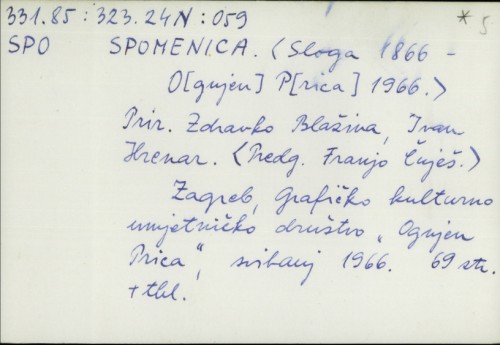 331.85 : 323.24N : 059 * 5
SPO SPOMENICA. (Sloga 1866 -
O[gnjen] P[rica] 1966.)
Prir. Zdravko Blažina, Ivan
Hrenar. (Predg. Franjo Čuješ.)
Zagreb, Grafičko kulturno
umjetničko društvo „Ognjen
Prica", svibanj 1966. 69 str.
+ tbl.